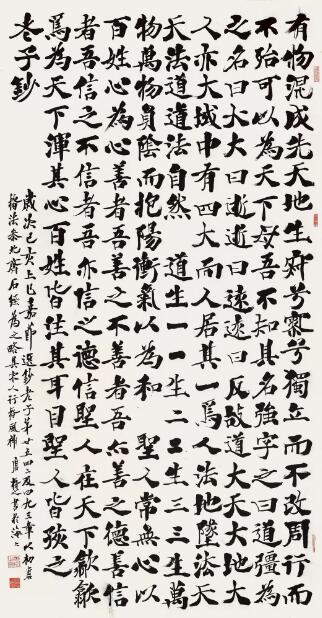 有物混成先天地生寂兮寥兮獨立而不改周行而
不殆可以為天下母吾不知其名強字之曰道彊為
之名曰大大曰逝逝曰遠遠曰反故道大天大地大
人亦大域中有四大而人居其一焉人法地墬法天
天法道道法自然 道生一一生二二生三三生萬
物萬物負陰而抱陽衝氣以為和 聖人常無心以
百姓心為心善者吾善之不善者吾亦善之德善信
者吾信之不信者吾亦信之德信聖人在天下歙歙
焉為天下渾其心百姓皆注其耳目聖人皆孩之
老子鈔
歲次己亥上巳嘉節選鈔老子第廿五四二及四九三章以初唐
楷法參北齊石經為之略具宋人行楷風 書於海上